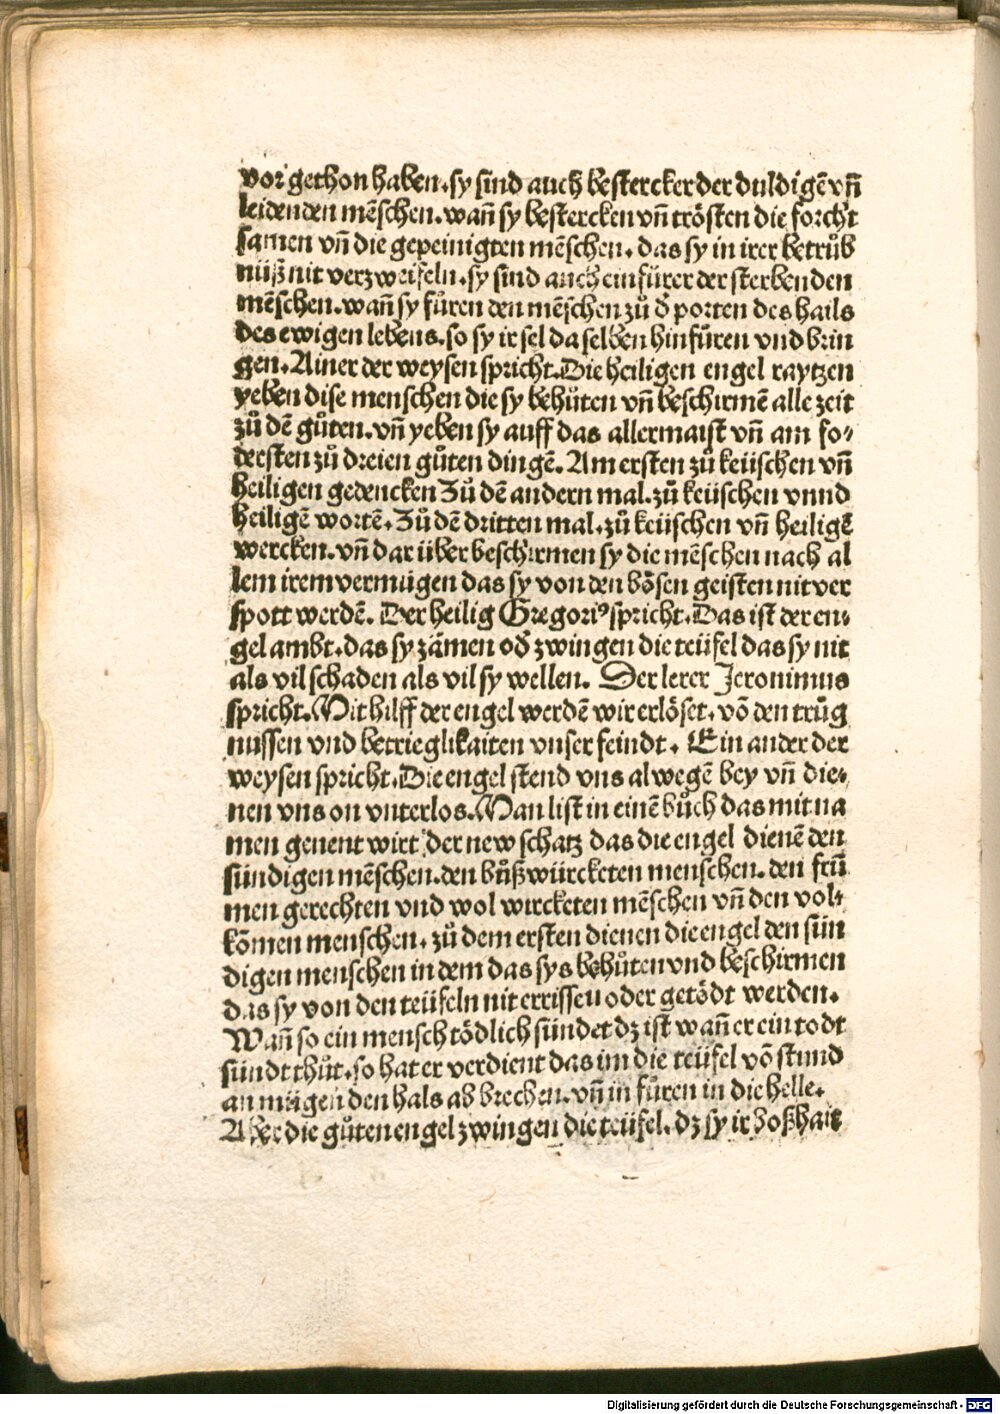 vor gethon haben. sy sind auch bestercker der duldigē vñ
leidenden mēschen. wañ sy bestercken vñ trösten die forcht
samen vñ die gepeinigten mēschen. das sy in irer betrůb
nüß nit verzweifeln. sy sind auch einfürer der sterbenden
mēschen. wañ sy füren den mēschen zů d̄ porten des hails
des ewigen lebens. so sy ir sel daselben hinfüren vnd brin
gen. Ainer der weysen spricht. Die heiligen engel raytzen
yeben dise menschen die sy behüten vñ beschirmē alle zeit
zů dē gůten. vñ yeben sy auff das allermaist vñ am fo⸗
dersten zů dreien gůten dingē. Am ersten zů keüschen vñ
heiligen gedencken Zů dē andern mal. zů keüschen vnnd
heiligē wortē. Zů dē dritten mal. zů keüschen vñ heiligē
wercken. vñ dar über beschirmen sy die mēschen nach al
lem irem vermügen das sy von den bösen geisten nit ver
spott werdē. Der heilig Gregoriꝰ spricht. Das ist der en⸗
gel ambt. das sy zämen od̄ zwingen die teüfel das sy nit
als vil schaden als vil sy wellen. Der lerer Jeronimus
spricht. Mit hilff der engel werdē wir erlöset. vō den trüg
nussen vnd betrieglikaiten vnser feindt. Ein ander der
weysen spricht. Die engel stend vns alwegē bey vñ die⸗
nen vns on vnterlos. Man list in einē bůch das mit na
men genent wirt der new schatz das die engel dienē den
sündigen mēschen. den bůßwürcketen menschen. den frū
men gerechten vnd wol wircketen mēschen vñ den vol⸗
kōmen menschen. zů dem ersten dienen die engel den sün
digen menschen in dem das sys behůten vnd beschirmen
das sy von den teüfeln nit errissen oder getödt werden.
Wañ so ein mensch tödlich sündet dz ist wañ er ein todt
sündt thůt. so hat er verdient das im die teüfel vō stund
an mügen den hals ab brechen. vñ in füren in die helle.
Aber die gůten engel zwingen die teüfel. dz sy ir boßhait
Digitalisierung gefördert durch die Deutsche Forschungsgemeinschaft - DFG